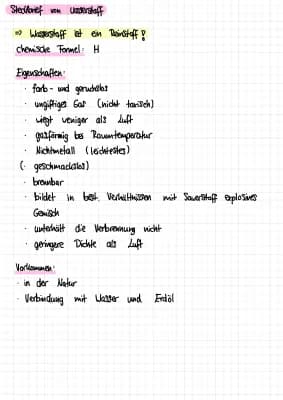 Steckbrief von Wasserstoff
=> Wasserstoff ist ein Reinstoff!
chemische Formel: H
Eigenschaften:
· farb- und geruchslos
· ungiftiges Gas (nicht toxisch)
· wiegt weniger als Luft
· gasförmig bei Raumtemperatur
· Nichtmetall (leichtestes)
(· geschmacklos)
· brennbar
· bildet in best. Verhältnissen mit Sauerstoff explosives
Gemisch
· unterhält die Verbrennung nicht
· geringere Dichte als Luft
Vorkommen:
· in der Natur
· Verbindung mit Wasser und Erdöl